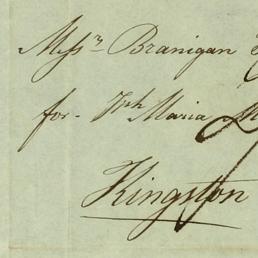 Messrs Branigan
for - Maria
Kingston